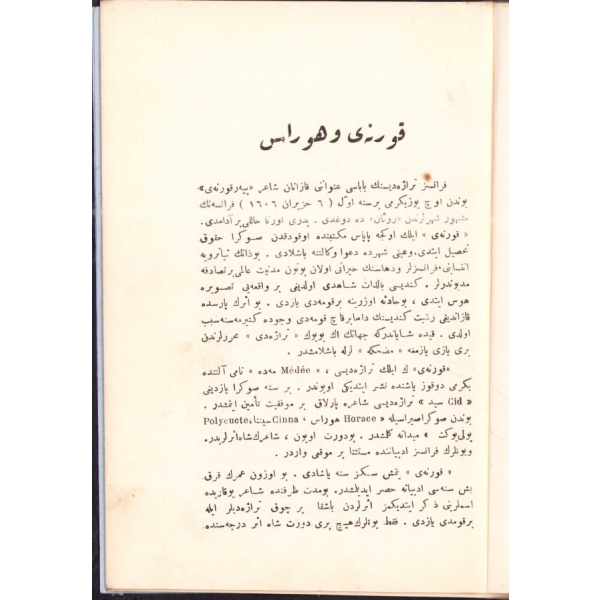 قورنه‌ی و هوراس
فرانسز تراژه‌دیسنك باباسی عنوانی قازانان شاعر «پیه‌ر قورنه‌ی»
بوندن اوچ یوز یكرمی بر سنه اوّل ( ٦ حزیران ١٦٠٦ ) فرانسه‌نك
مشهور شهرلرندن «روئان» ده دوغدی . پدری اورتا حاللی بر آدامدی .
« قورنه‌ی » ایلك اوكجه پاپاس مكتبنده اوقودقدن صوكرا حقوق
تحصیل ایتدی. وعینی شهرده دعوا وكالتنه باشلادی . بو ذاتك تیاترویه
انتسابنی، فرانسزلر ودهاسنك حیرانی اولان بوتون مدنیت عالمی بر تصادفه
مدیوندرلر . كندیسی بالذات شاهدی اولدیغی بر واقعه‌یی تصویره
هوس ایتدی ، بو حادثه اوزرینه برقومه‌دی یازدی . بو اثرك پارسده
قازاندیغی رغبت كندیسنك داها برقاچ قومه‌دی وجوده كتیرمه‌سنه سبب
اولدی . قیده شایاندركه جهانك اك بویوك « تراژه‌دی » محررلرندن
بری یازی یازمغه « مضحكه » لرله باشلامشدر .
«قورنه‌ی» ك ایلك تراژه‌دیسی ، « Médée مه‌ده » نامی آلتنده
یكرمی دوقوز یاشنده نشر ایتدیكی اویوندر . بر سنه صوكرا یازدیغی
« Cid سید » تراژه‌دیسی شاعره پارلاق بر موفقیت تأمین ایتمشدر .
بوندن صوكرا صیراسیله « Horace هوراس ، Cinna سیننا، Polyeucte
پولی‌یوكت » میدانه كلمشدر . بو دورت اویون ، شاعرك شاه اثرلریدر.
وبونلرك فرانسز ادبیاتنده مستثنا بر موقعی واردر .
« قورنه‌ی » یتمش سكز سنه یاشادی . بو اوزون عمرك قرق
بش سنه‌سی ادبیاته حصر ایدیلمشدر. بومدت ظرفنده شاعر یوقاریده
اسملرینی ذكر ایتدیكمز اثرلردن باشقا بر چوق تراژه‌دیلر ایله
برقومه‌دی یازدی . فقط بونلرك هیچ بری دورت شاه اثر درجه‌سنده